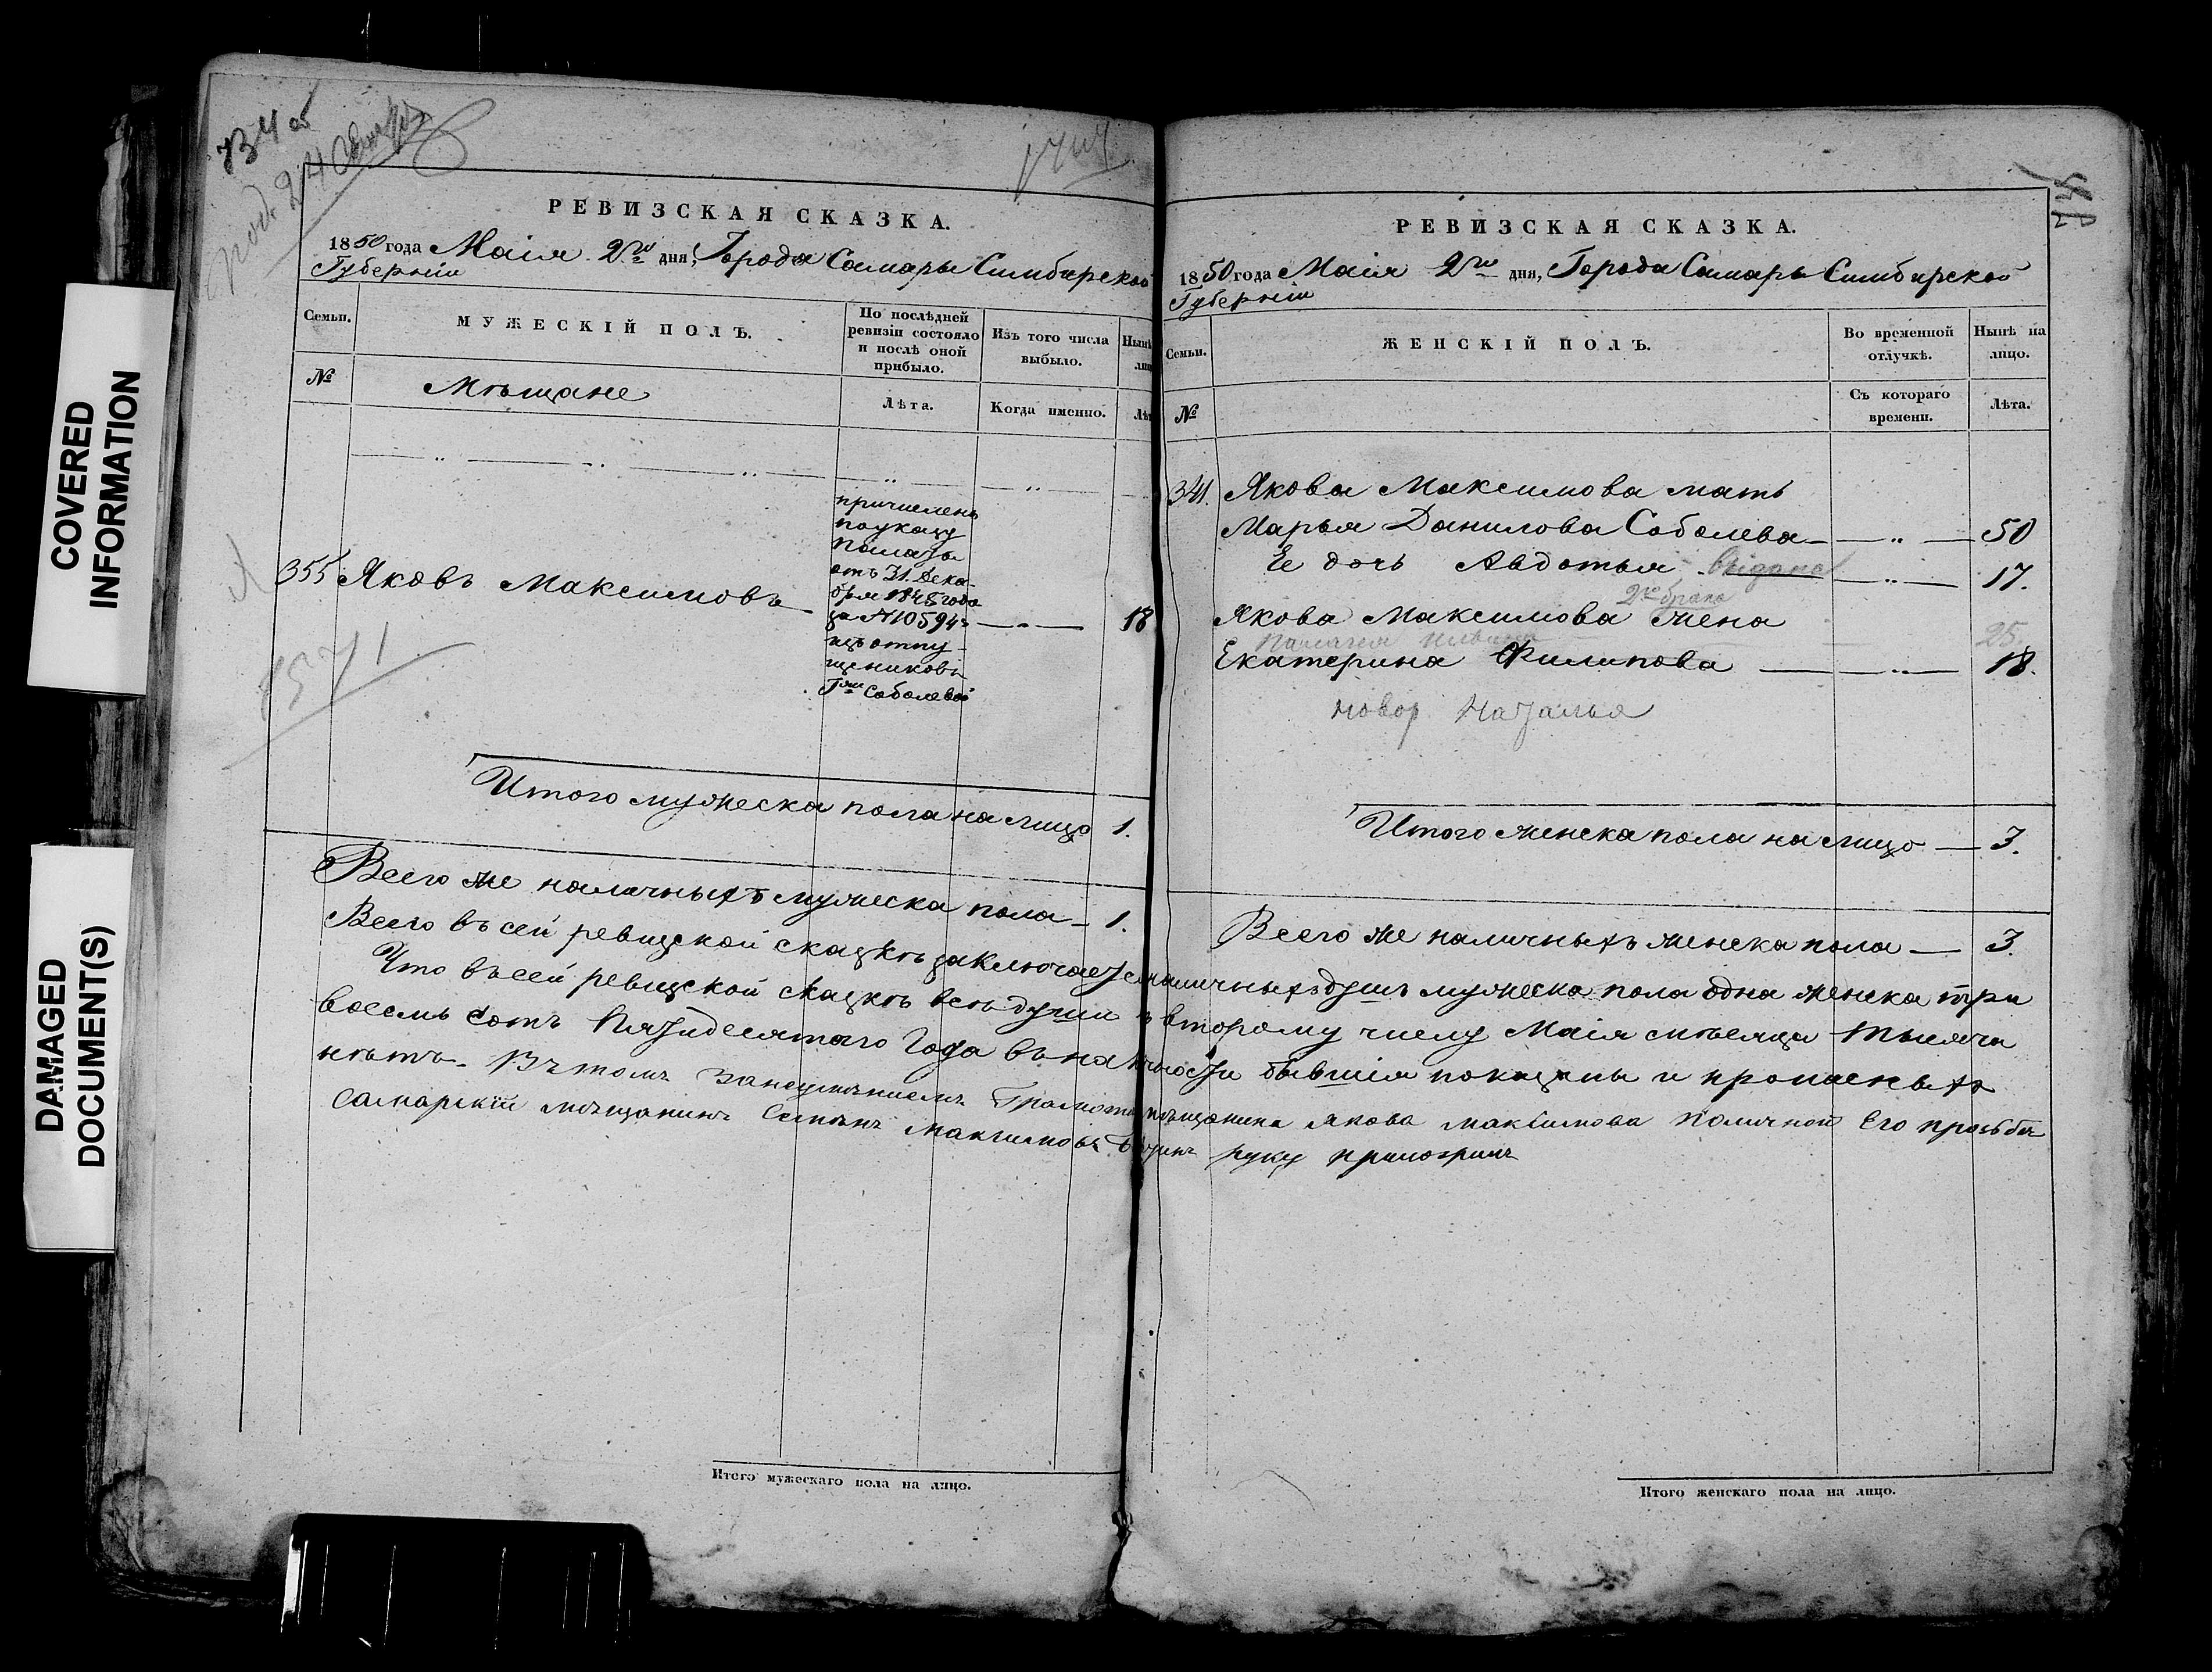 COVERED
INFORMATION
DAMAGED
DOCUMENT(S)
РЕВИЗСКАЯ СКАЗКА.
1850 года Маія 2го дня, Города Самары Симбирской
Губерніи
Семьи.
МУЖЕСКІЙ ПОЛЪ.
По послѣдней
ревизіи состояло
и послѣ оной
прибыло.
Изъ того числа
выбыло.
№
Мѣщане
Лѣта.
Когда именно.
причисленъ
по указу
Палаты
отъ 31. Дека-
бря 184 года
за №10594=
изъ отпу-
щениковъ
Гжи Соболевой
355 Яковъ Максимовъ 18
1571
Итого мужеска пола на лицо 1.
Всего же наличныхъ мужеска пола - 1.
РЕВИЗСКАЯ СКАЗКА.
1850 года Маія 2го дня, Города Самары Симбирской
Губерніи
Семьи.
ЖЕНСКІЙ ПОЛЪ.
Во временной
отлучкѣ.
Нынѣ на
лицо.
№
Съ котораго
времени.
Лѣта.
341. Якова Максимова мать
Марья Данилова Соболева 50
Ее дочь Авдотья выдана 17.
2го брака
Якова Максимова жена
25.
Екатерина Филипова 18.
новор Наталья
Итого женска пола на лицо 3.
Всего же наличныхъ женска пола 3.
Всего въ сей ревизской сказкѣ заключается наличныхъ душъ мужеска пола одна женска три
Что въ сей ревизской сказкѣ всѣ души к второму числу Маія мѣсяца тысяча
восемь сотъ Пятидесятаго Года въ наличности бывшія показаны и прописныхъ
нѣтъ. Въ томъ за неумѣніемъ Грамоте мѣщанина Якова Максимова по личной его прозьбѣ
Самарскій мѣщанинъ Семенъ Максимовъ руку приложилъ
Итого мужескаго пола на лицо.
Итого женскаго пола на лицо.